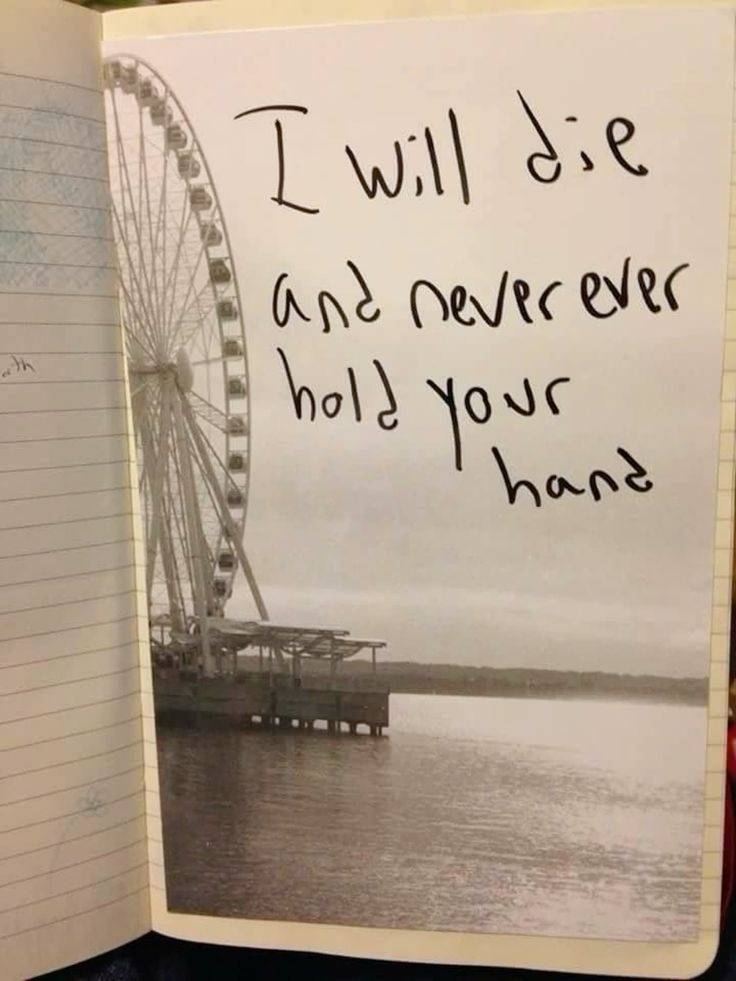 I will die
and never ever
hold your
hand